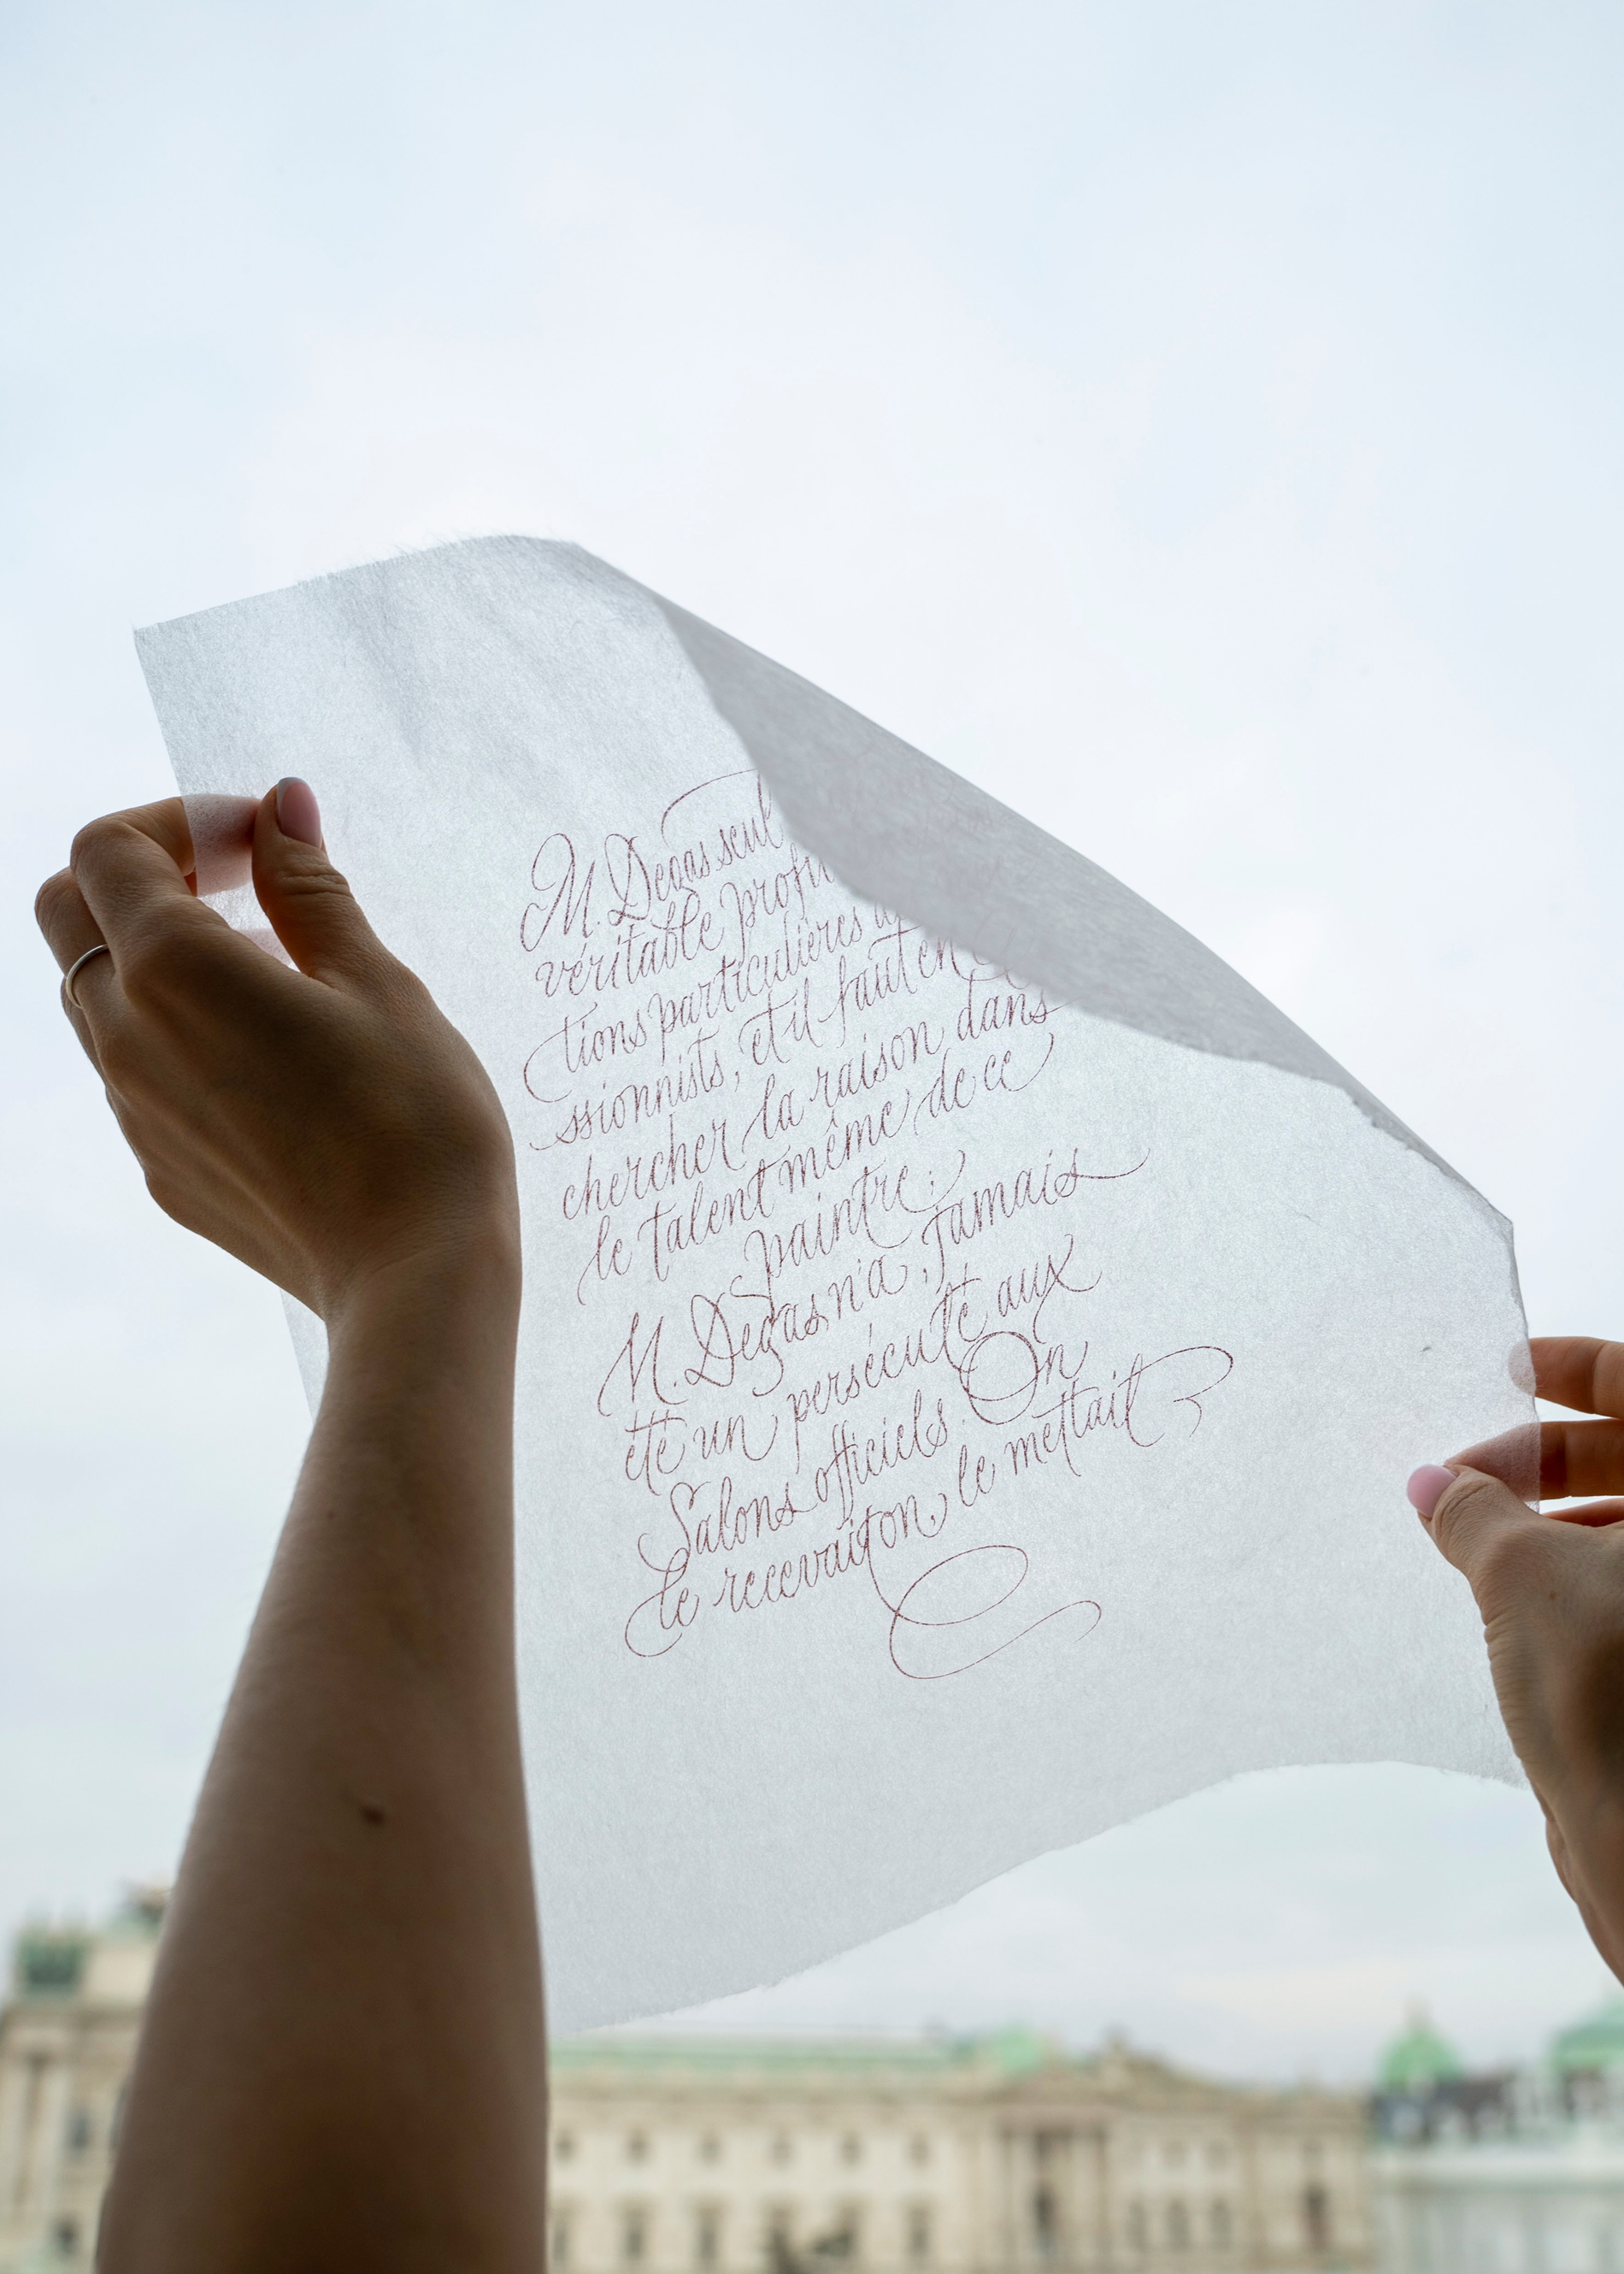 M. Degas seul
véritable profi
tions particulières
ssionnists, et il faut en
chercher la raison dans
le talent même de ce
paintre;
M. Degas n'a, jamais
été un persécuté aux
Salons officiels. On
le recevait on, le mettait